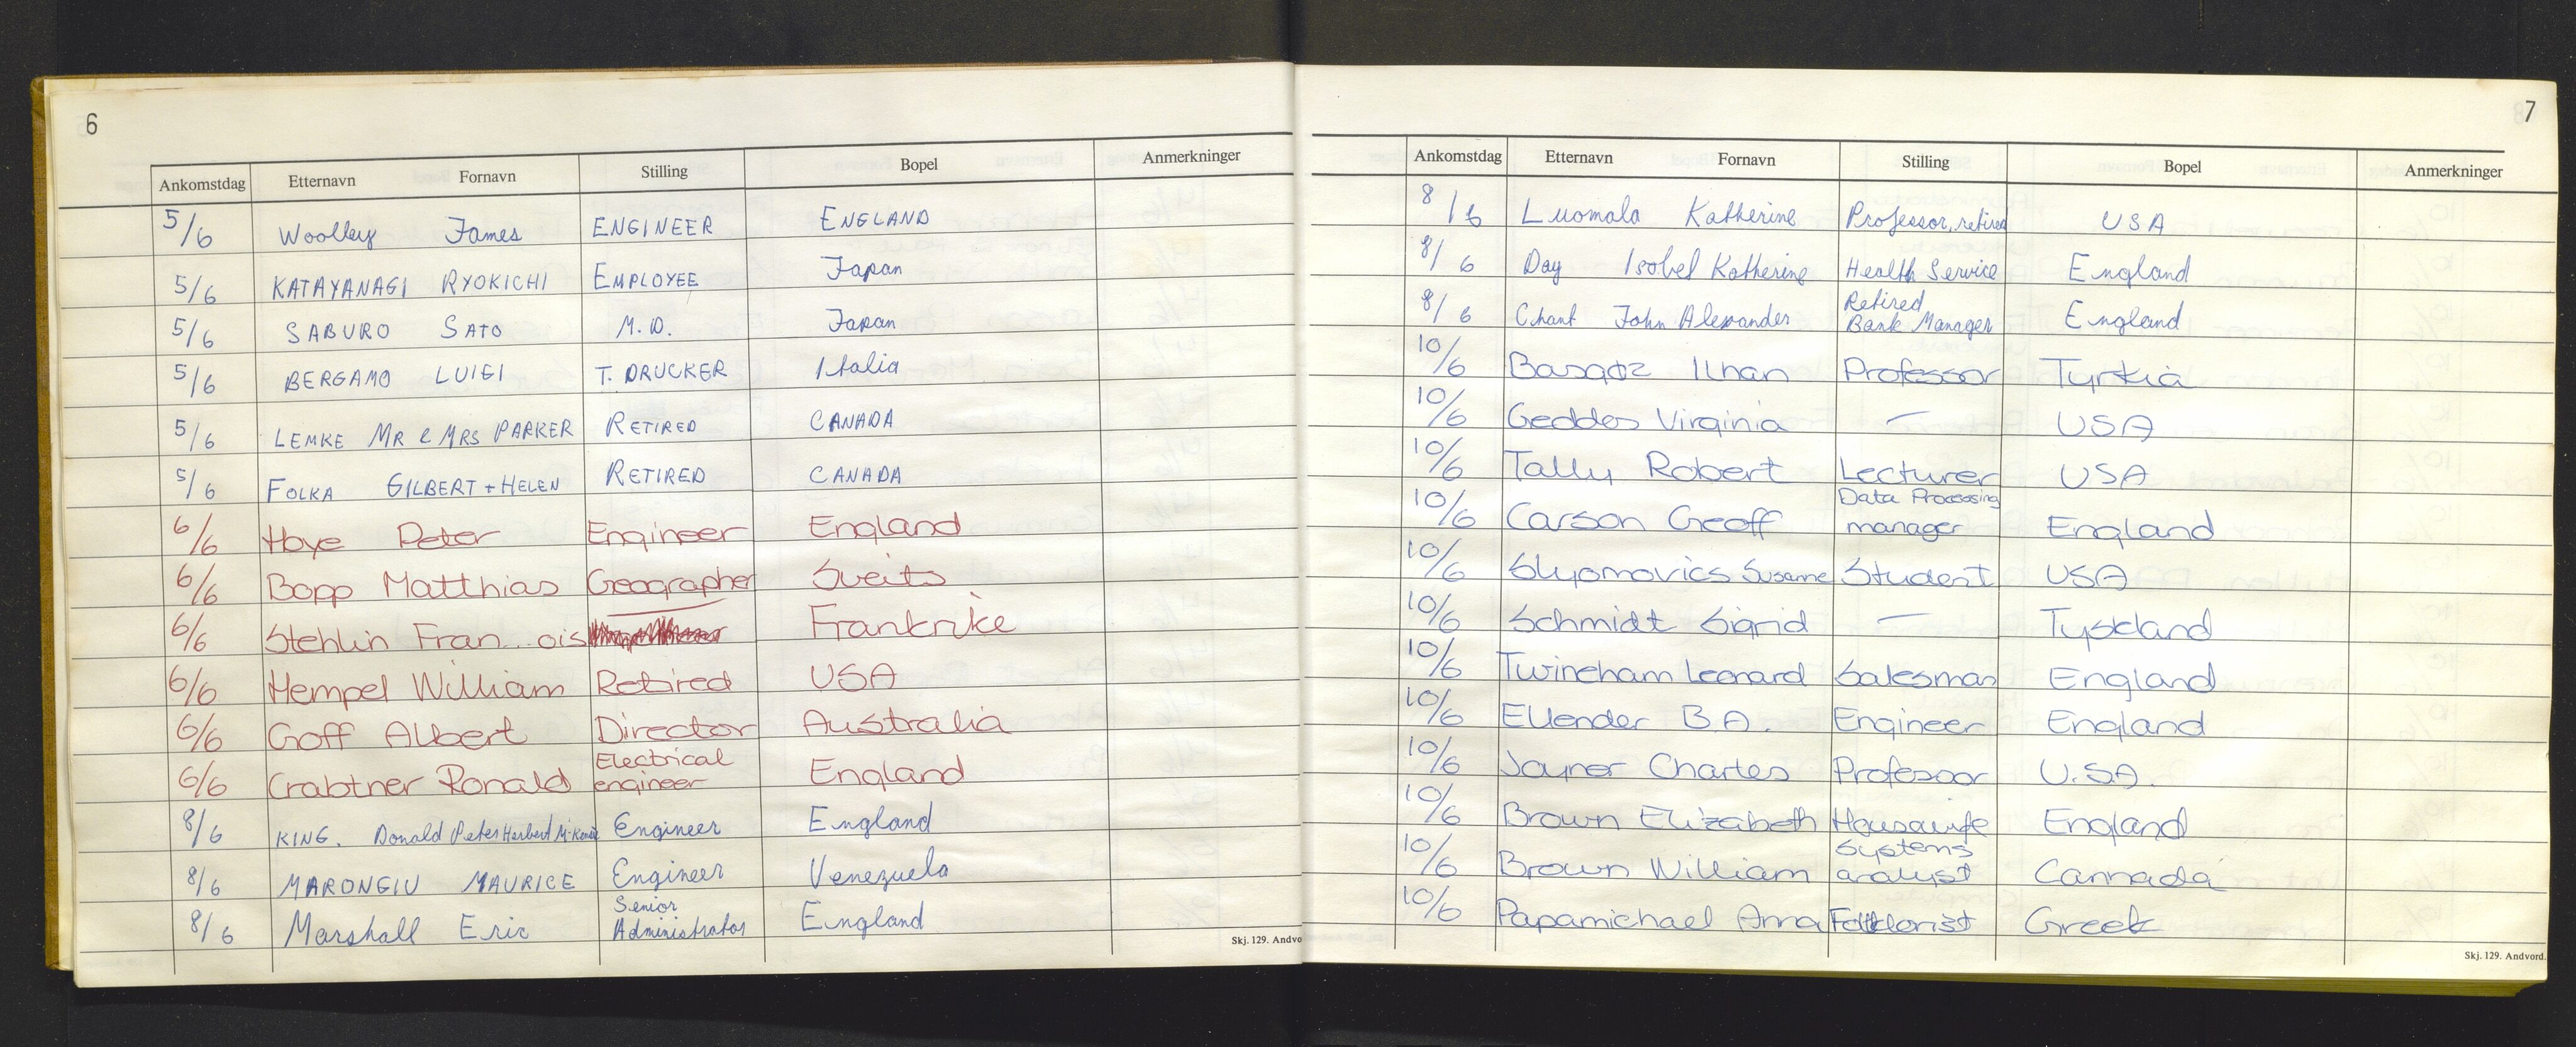 6
Ankomstdag Etternavn Fornavn Stilling Bopel Anmerkninger
5/6 Woolley James ENGINEER ENGLAND
5/6 KATAYANAGI RYOKICHI EMPLOYEE Japan
5/6 SABURO SATO M.D. Japan
5/6 BERGAMO LUIGI T. DRUCKER Italia
5/6 LEMKE MR & MRS PARKER RETIRED CANADA
5/6 FOLKA GILBERT + HELEN RETIRED CANADA
6/6 Hoye Peter Engineer England
6/6 Bopp Matthias Geographer Sveits
6/6 Stehlin Fran...ois Frankrike
6/6 Hempel William Retired USA
6/6 Goff Albert Director Australia
6/6 Crabtner Ronald Electrical engineer England
8/6 KING. Donald Peter Herbert Engineer England
8/6 MARONGIU MAURICE Engineer Venezuela
8/6 Marshall Eric Senior Administrator England
Skj. 129. Andvo
7
Ankomstdag Etternavn Fornavn Stilling Bopel Anmerkninger
8/6 Luomala Katherine Professor, retired USA
8/6 Day Isobel Katherine Health Service England
8/6 Chant John Alexander Retired Bank Manager England
10/6 Basgöz Ilhan Professor Tyrkia
10/6 Geddes Virginia — USA
10/6 Tally Robert Lecturer USA
10/6 Carson Geoff Data Processing manager England
10/6 Slyomovics Susanne Student USA
10/6 Schmidt Sigrid — Tyskland
10/6 Twineham Leonard Salesman England
10/6 Ellender B.A. Engineer England
10/6 Joyner Charles Professor U.S.A.
10/6 Brown Elizabeth Housewife England
10/6 Brown William Systems analyst Cannada
10/6 Papamichael Anna Folklorist Greek
Skj. 129. Andvord.